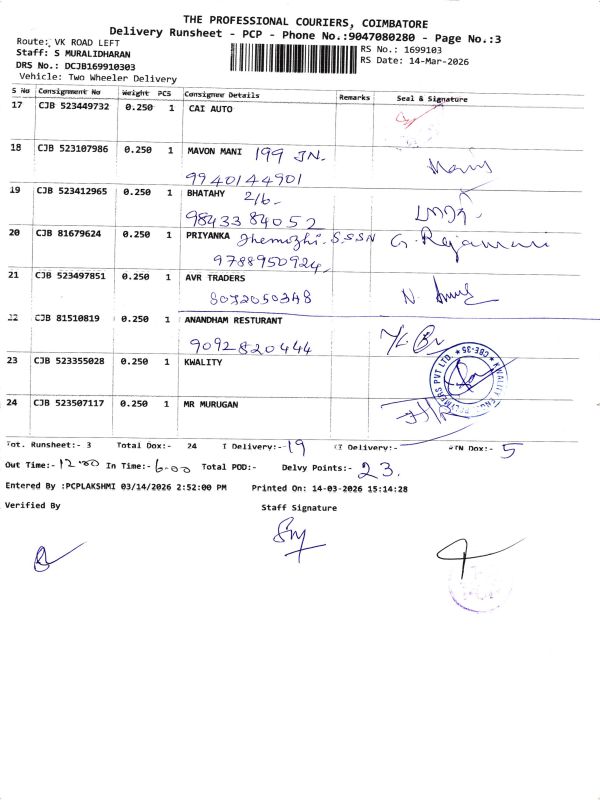 THE PROFESSIONAL COURIERS, COIMBATORE
Delivery Runsheet - PCP - Phone No.:9047080280 - Page No.:3
Route: VK ROAD LEFT
RS No.: 1699103
Staff: S MURALIDHARAN
RS Date: 14-Mar-2026
DRS No.: DCJB169910303
Vehicle: Two Wheeler Delivery
S No Consignment No Weight PCS Consignee Details Remarks Seal & Signature
17 CJB 523449732 0.250 1 CAI AUTO
18 CJB 523107986 0.250 1 MAVON MANI 199 JN.
9940144901
19 CJB 523412965 0.250 1 BHATAHY 2/6-
9843384052
20 CJB 81679624 0.250 1 PRIYANKA S.S.S.N G. Rajamani
9788950924
21 CJB 523497851 0.250 1 AVR TRADERS
8072050348
22 CJB 81510819 0.250 1 ANANDHAM RESTURANT
9092820444
23 CJB 523355028 0.250 1 KWALITY
KWALITY PVT LTD. CBE-35
24 CJB 523507117 0.250 1 MR MURUGAN
Tot. Runsheet:- 3 Total Dox:- 24 I Delivery:- 19 II Delivery:- RTN Dox:- 5
Out Time:- 12.00 In Time:- 6.00 Total POD:- Delvy Points:- 23.
Entered By :PCPLAKSHMI 03/14/2026 2:52:00 PM Printed On: 14-03-2026 15:14:28
Verified By Staff Signature